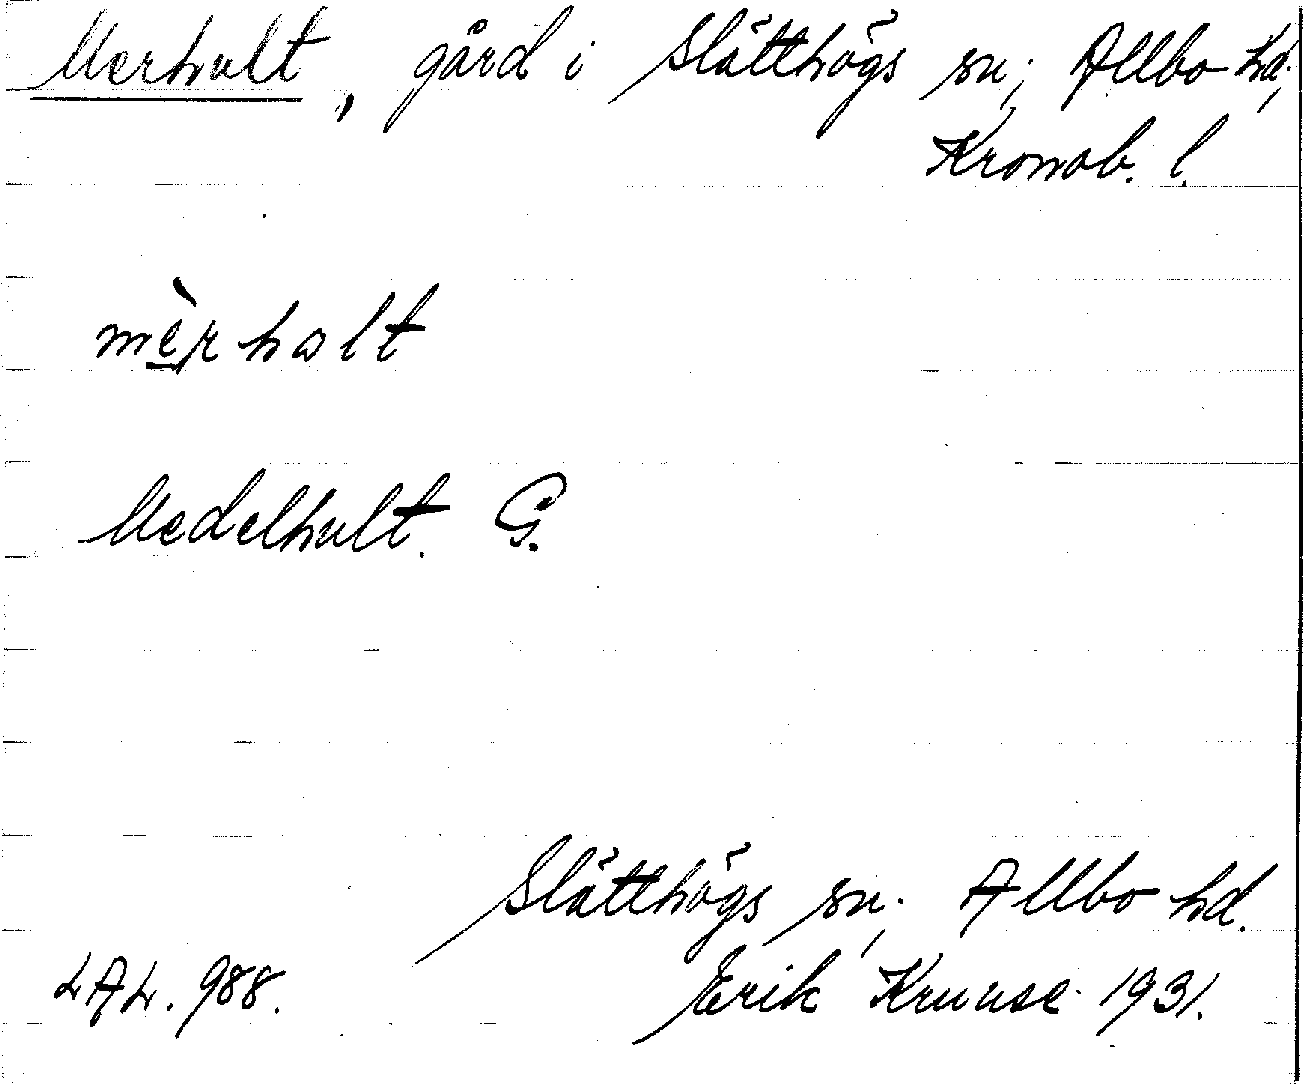 Merhult, gård i Slätthögs sn; Allbo hd,
Kronob. l.
mèrhalt
Medelhult. G.
Slätthögs sn; Allbo hd.
LAL. 988. Erik Kruuse 1931.